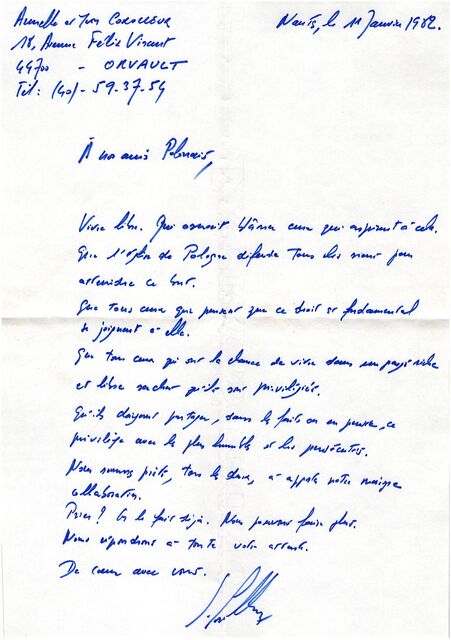 Armelle et Yves
18, Avenue Félix Vincent
44700 - ORVAULT
Tél : (40) - 59.37.54
Nantes, le 11 Janvier 1982.
À nos amis Polonais,
Vivre libre. Qui oserait blâmer ceux qui aspirent à cela.
Que l'église de Pologne défende tous les siens pour
atteindre ce but.
Que tous ceux qui pensent que ce droit est fondamental
se joignent à elle.
Que tous ceux qui ont la chance de vivre dans un pays riche
et libre sachent qu'ils sont privilégiés.
Qu'ils doivent partager, dans les faits on en pensée, ce
privilège avec les plus humbles et les persécutés.
Nous sommes prêts, tous les deux, à apporter notre maigre
collaboration.
Prier ? On le fait déjà. Nous pouvons faire plus.
Nous répondrons à toute votre attente.
De cœur avec vous.